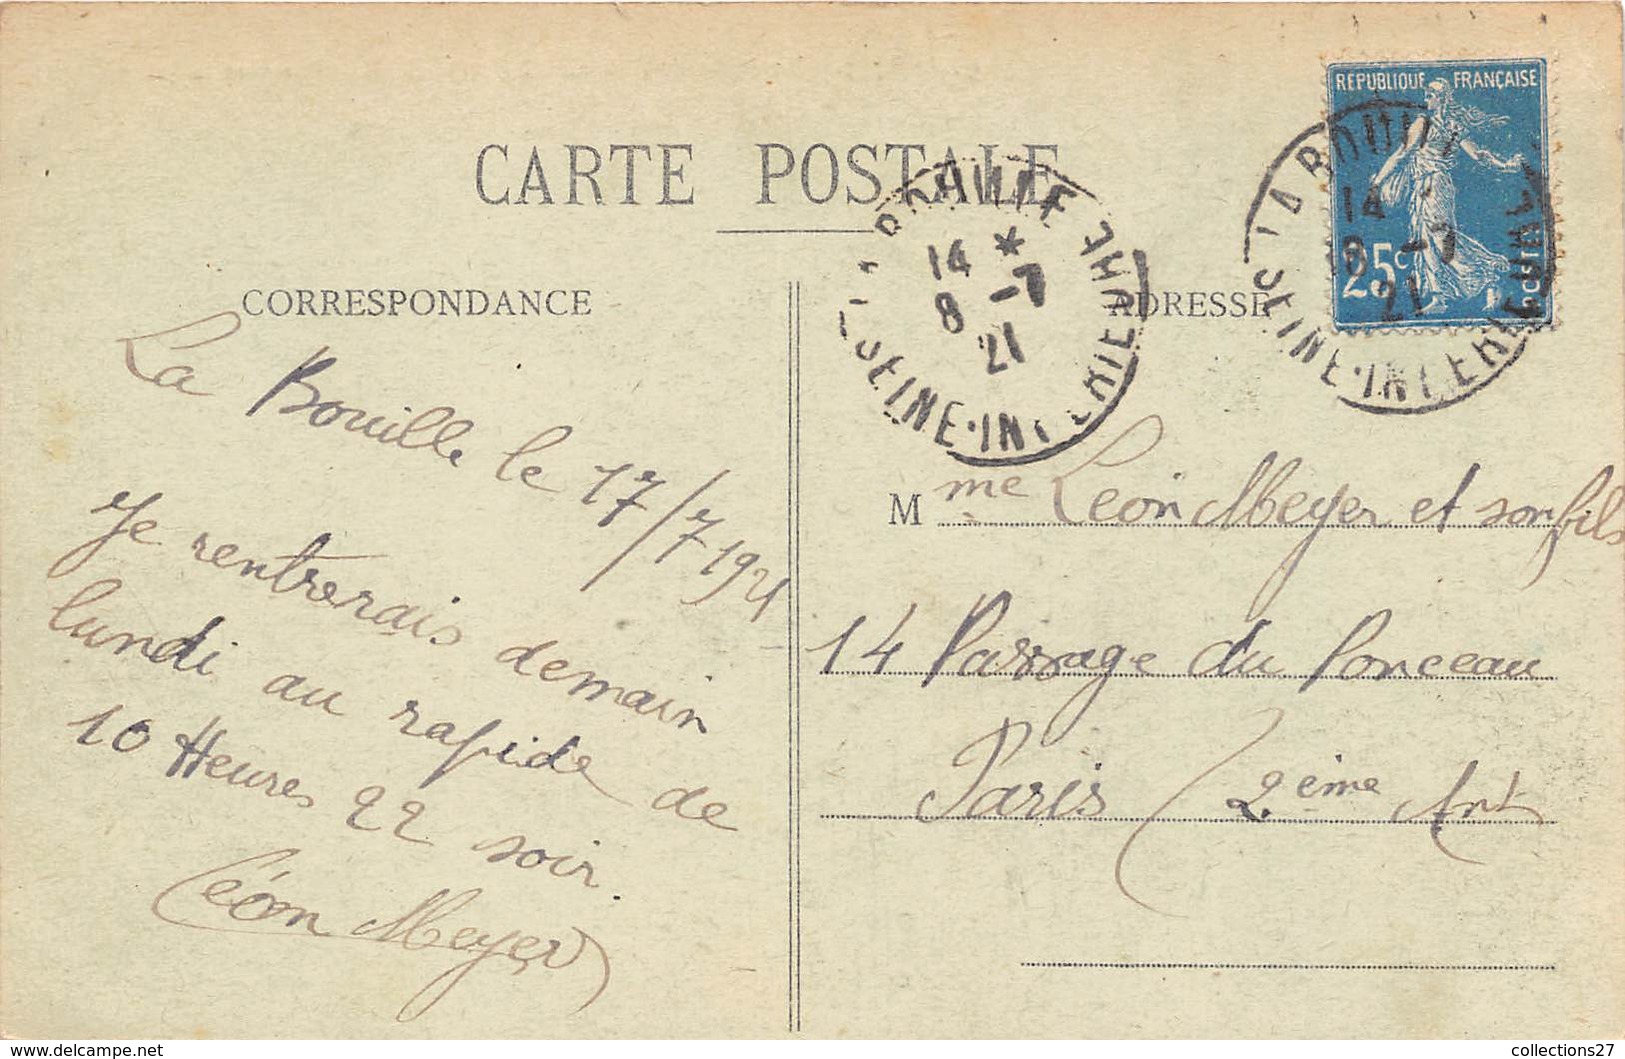 CARTE POSTALE
CORRESPONDANCE
La Bouille le 17/7 1921
Je rentrerais demain
lundi au rapide de
10 Heures 22 soir.
Léon Meyer
LA BOUILLE
14 *
8 -7
21
SEINE-INFERIEURE
REPUBLIQUE FRANÇAISE
25c
LA BOUILLE
14
18 -7
21
SEINE-INFERIEURE
ADRESSE
Mme Léon Meyer et son fils
14 Passage du Ponceau
Paris (2ème Art
collections27